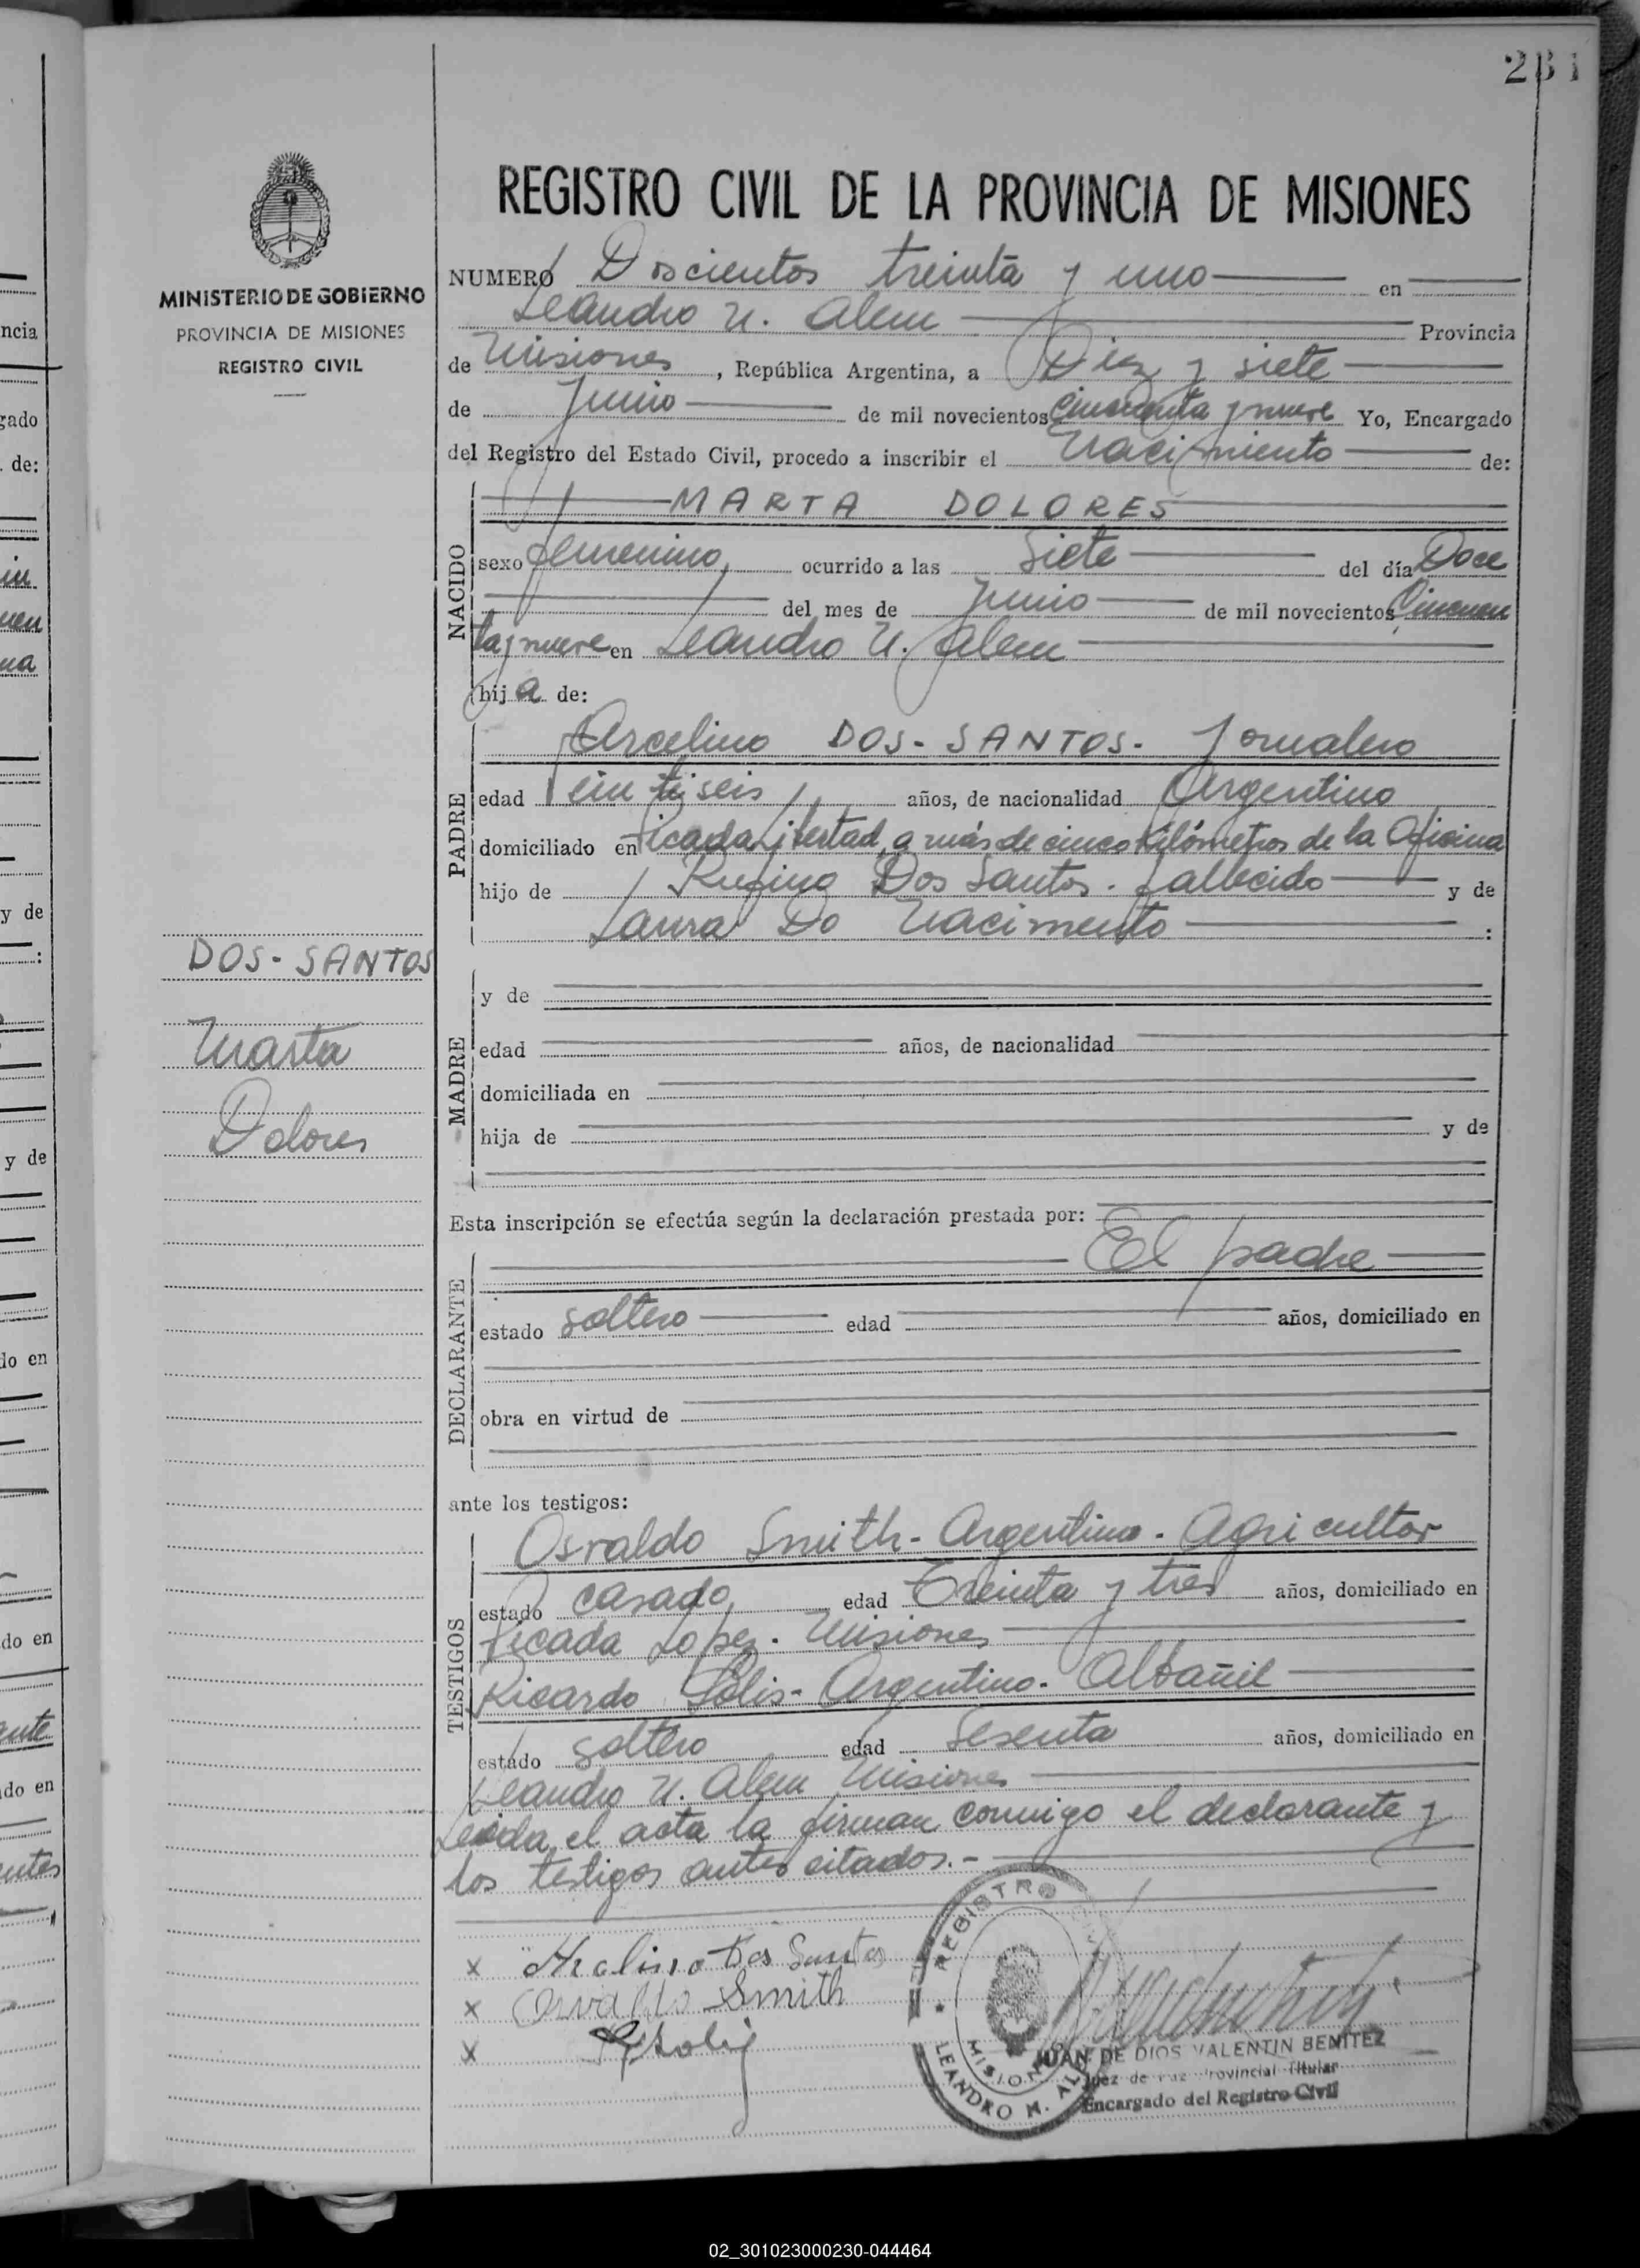 231
REGISTRO CIVIL DE LA PROVINCIA DE MISIONES
MINISTERIO DE GOBIERNO
PROVINCIA DE MISIONES
REGISTRO CIVIL
NUMERO Doscientos treinta y uno en
Leandro N. Alem Provincia
de Misiones, República Argentina, a Diez y siete
de Junio de mil novecientos cincuenta y nueve Yo, Encargado
del Registro del Estado Civil, procedo a inscribir el Nacimiento de:
NACIDO
MARTA DOLORES
sexo femenino, ocurrido a las Siete del día Doce
del mes de Junio de mil novecientos Cincuen
ta y nueve en Leandro N. Alem
hija de:
PADRE
Arcelino DOS-SANTOS- Jornalero
edad Veintiseis años, de nacionalidad Argentino
domiciliado en Picada Libertad, a más de cinco kilómetros de la Oficina
hijo de Rufino Dos Santos. fallecido y de
Laura Do Nacimento :
DOS-SANTOS
Marta
Dolores
MADRE
y de
edad años, de nacionalidad
domiciliada en
hija de y de
Esta inscripción se efectúa según la declaración prestada por:
DECLARANTE
El padre
estado soltero edad años, domiciliado en
obra en virtud de
ante los testigos:
TESTIGOS
Osvaldo Smith- Argentino- Agricultor
estado casado, edad Treinta y tres años, domiciliado en
Picada Lopez. Misiones
Ricardo Solis- Argentino- Albañil
estado soltero edad Sesenta años, domiciliado en
Leandro N. Alem Misiones
Leida el acta la firman conmigo el declarante y
los testigos antes citados.-
x Dos Santos
x Osvaldo Smith
x
REGISTRO
MISIONES
LEANDRO N. ALEM
JUAN DE DIOS VALENTIN BENITEZ
Juez de Paz Provincial Titular
Encargado del Registro Civil
ncia
gado
de:
y de
y de
do en
do en
ante
do en
02_301023000230-044464